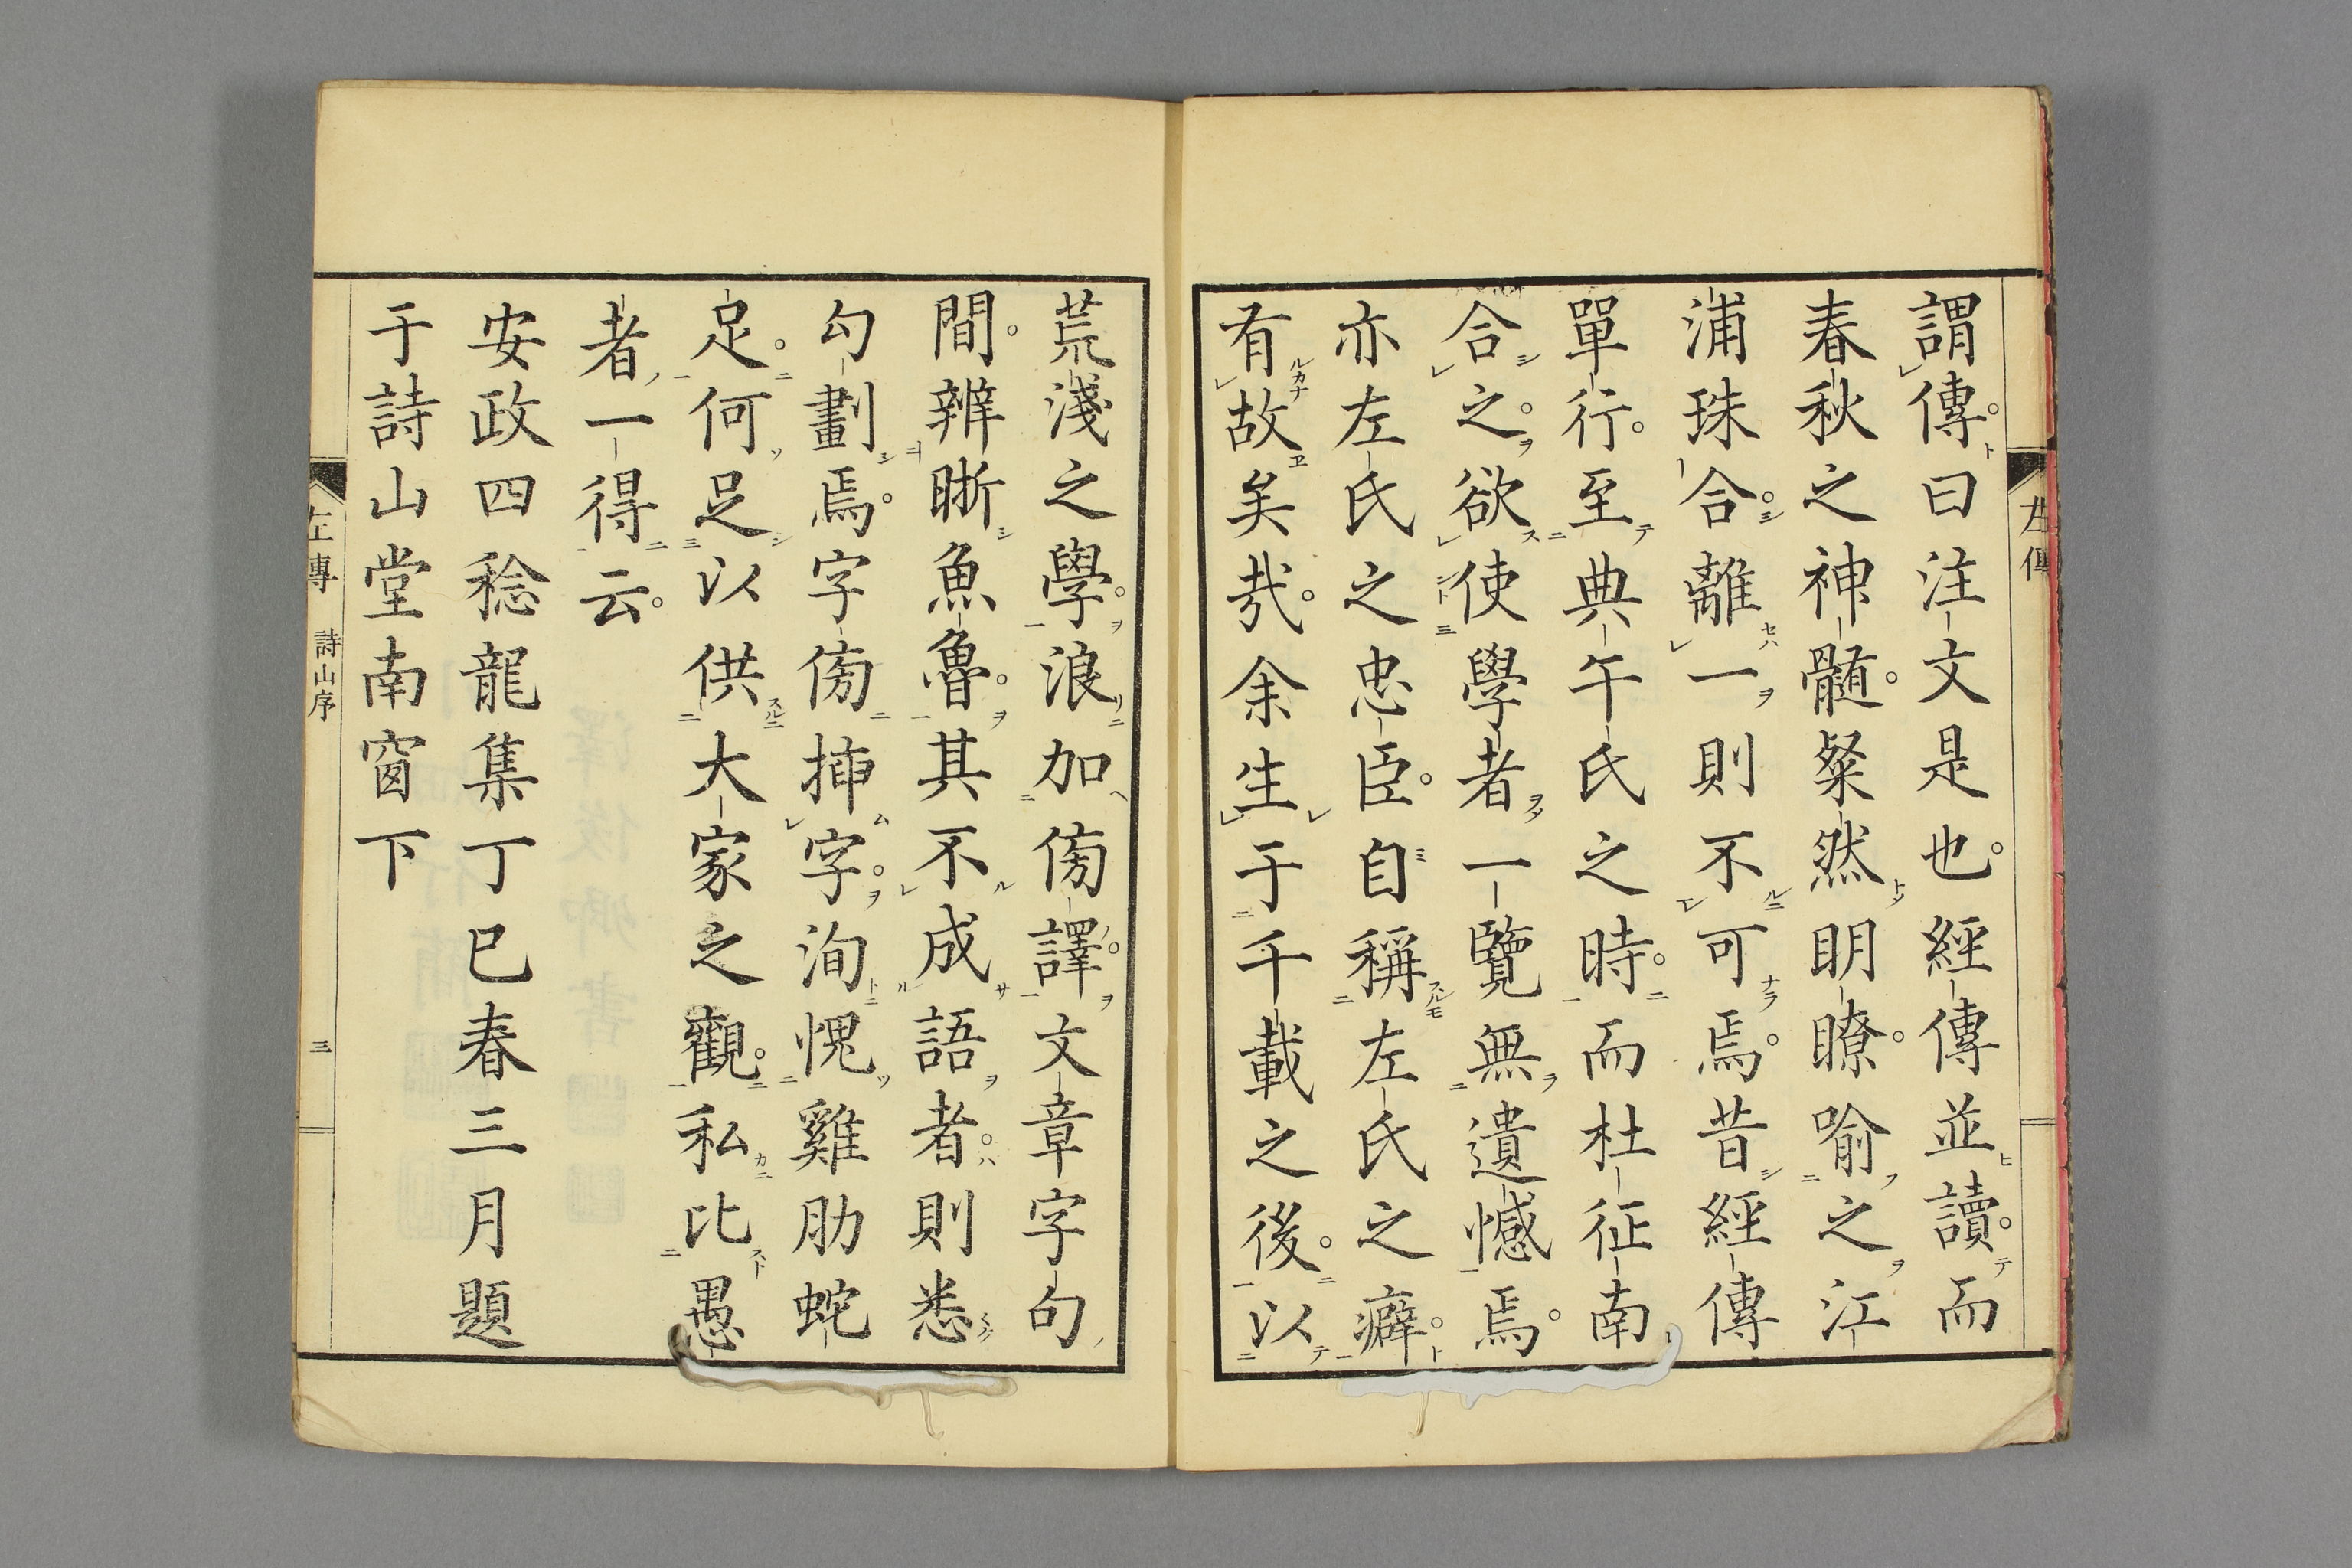 謂傳曰注文是也經傳並讀而
春秋之神髓粲然明瞭喻之江
浦珠合離一則不可焉昔經傳
單行至典午氏之時而杜征南
合之欲使學者一覽無遺憾焉
亦左氏之忠臣自稱左氏之癖
有故矣哉余生于千載之後以
荒淺之學浪加傍譯文章字句
間辨晣魚魯其不成語者則悉
勾劃焉字傍挿字洵愧雞肋蛇
足何足以供大家之觀私比愚
者一得云
安政四稔龍集丁巳春三月題
于詩山堂南窗下
左傳 詩山序 三